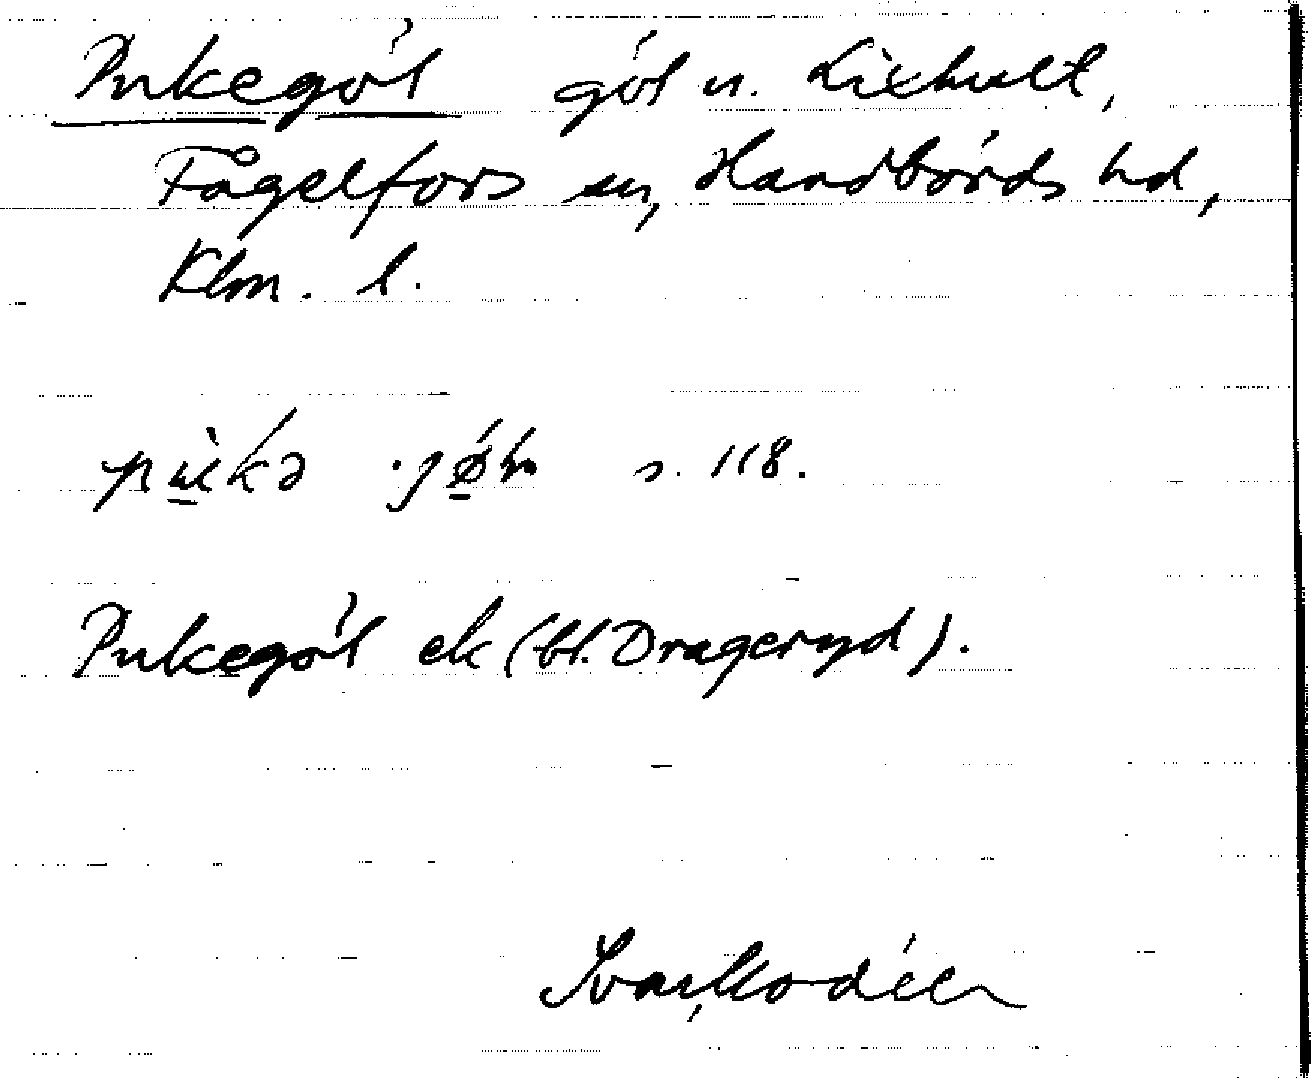 Pukegöl göl u. Lixhult,
Fågelfors sn, Handbörds hd,
Klm. l.
s. 118.
Pukegöl ek (bl. Drageryd).
Ivar Modéer